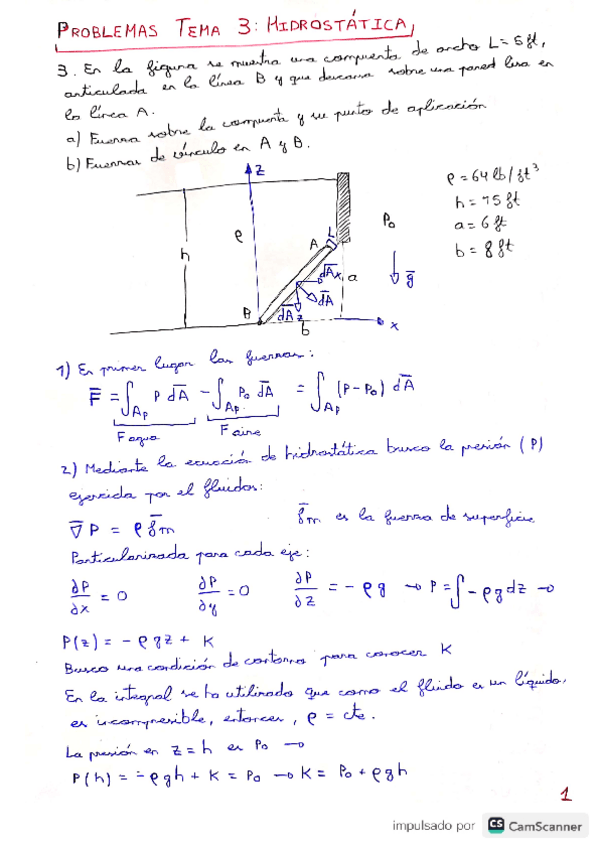 PROBLEMAS TEMA 3: HIDROSTÁTICA
3. En la figura se muestra una compuerta de ancho L = 5 ft,
articulada en la línea B y que descansa sobre una pared lisa en
la línea A.
a) Fuerza sobre la compuerta y su punto de aplicación
b) Fuerzas de vínculo en A y B.
z
ρ = 64 lb/ft³
h = 15 ft
a = 6 ft
b = 8 ft
ρ
P₀
L
A
h
dAx
a
g̅
dA̅
dAz
B
b
x
1) En primer lugar las fuerzas:
F̅ = ∫Ap P dA̅ - ∫Ap P₀ dA̅ = ∫Ap (P-P₀) dA̅
F agua
F aire
2) Mediante la ecuación de hidrostática busco la presión (P)
ejercida por el fluidos:
∇̅P = ρ f̅m
f̅m es la fuerza de superficie
Particularizada para cada eje:
∂P/∂x = 0 ∂P/∂y = 0 ∂P/∂z = - ρg → P = ∫-ρg dz →
P(z) = - ρgz + K
Busco una condición de contorno para conocer K
En la integral se ha utilizado que como el fluido es un líquido,
es incompresible, entonces, ρ = cte.
La presión en z = h es P₀ →
P(h) = - ρgh + K = P₀ → K = P₀ + ρgh
1
impulsado por CS CamScanner